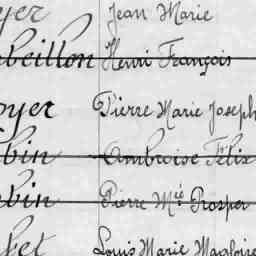 yer Jean Marie
beillon Henri François
oyer Pierre Marie Joseph
bin Ambroise Félix
bin Pierre Mie Prosper
bet Louis Marie Magloire